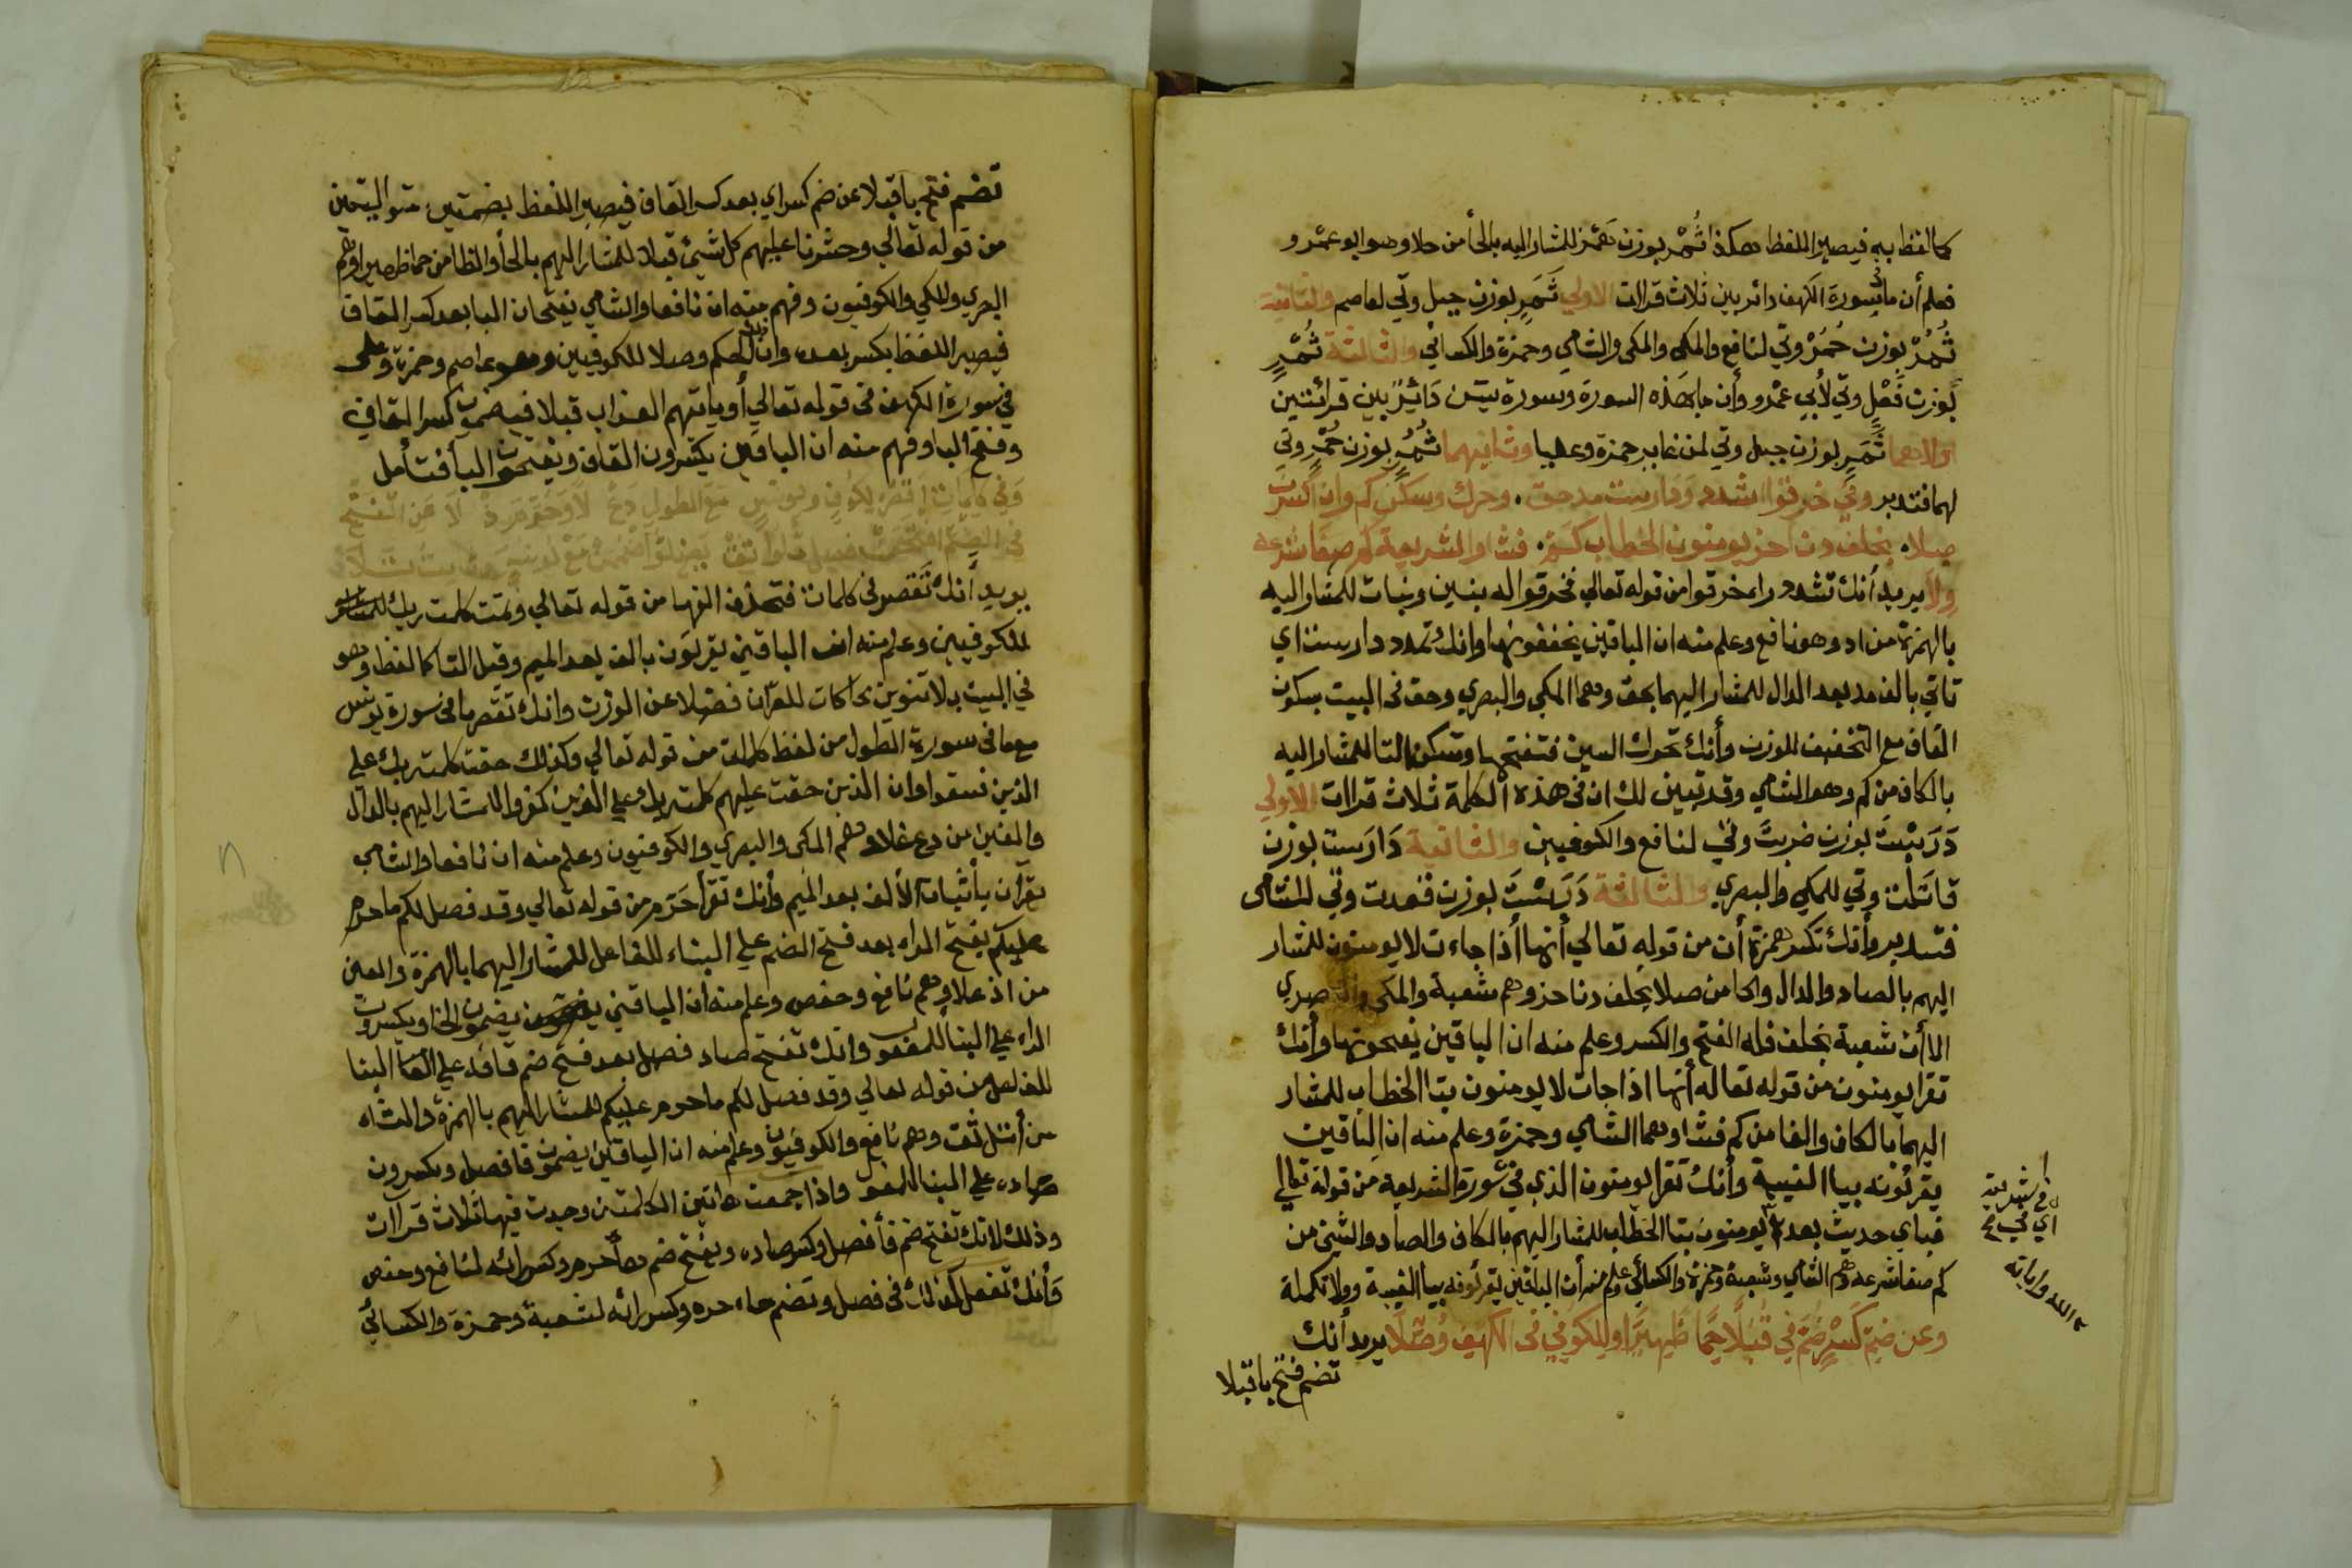 كالفظ به فيصير اللفظ هكذا ثُمْرٌ بوزن حمز للمشار اليه بالحأ من حلا وهو ابو عمرو
فعلم أن ما في سورة الكهف دائر بين ثلاث قراات الاولي ثَمَرٍ بوزن جبل وتي لعاصم والثانية
ثُمُرٌ بوزن حُمُرٌ وتي لنافع والمكي والمكي والشامي وحمزة والكسائي والثالثة ثُمْرٍ
بوزن فُعْلٍ وتي لأبي عمرو وأن ما بهذه السورة وسورة يس دَائِرٌ بين قرائتين
اولاهما ثَمَرٍ بوزن جبل وتي لمن غاير حمزة وعليا وثانيهما ثُمُرٍ بوزن حُمُرٍ وتي
لهما فتدبر وفي خرقوا اشدد ودارست مد حق . وحرك وسكن كم وان اكسرن
صلا . بخلف دنا حز يومنون الخطاب كم . فشا والشريعة كم صفا شرعه
ولا يريد أنك تشدد راء خرقوا من قوله تعالي فخرقوا له بنين وبنات للمشار اليه
بالهمزة من اد وهو نافع وعلم منه ان الباقين يخففونها وانك تمدد دارست اي
تاتي بالف مد بعد الدال للمشار اليهما بحق وهما المكي والبصري وحق في البيت بسكون
القاف مع التخفيف للوزن وأنك تحرك السين فتفتحها وتسكن التا للمشار اليه
بالكاف من كم وهو الشامي وقد تبين لك ان في هذه الكلمة ثلاث قراات الاولي
دَرَسْتَ بوزن ضربت وتي لنافع والكوفيين والثانية دَارَست بوزن
قاتلت وتي للمكي والبصري والثالثة دَرَسَتْ بوزن قعدت وتي للشامي
فتدبر وأنك تكسر همزة أن من قوله تعالي أنها أذا جاءت لا يومنون للمشار
اليهم بالصاد والدال والحا من صلا بخلف دنا حز وهم شعبة والمكي والبصري
الا أن شعبة بخلف فله الفتح والكسر وعلم منه ان الباقين يفتحونها وأنك
تقرا يومنون من قوله تعاله أنها اذا جات لا يومنون بتا الخطاب للمشار
اليهما بالكاف والفا من كم فشا وهما الشامي وحمزة وعلم منه ان الباقين
يقرئونه بيا الغيبة وأنك تقرا يومنون الذي في سورة الشريعة من قوله تعالي
فباي حديث بعد يومنون بتا الخطاب للمشار اليهم بالكاف والصاد والشين من
كم صفا شرعه وهم الشامي وشعبة وحمزة والكسائي وعلم منه أن الباقين يقرئونه بيا الغيبة وولا تكملة
وعن ضم كَسْرٍ ضم في قُبُلًا حِمًا ظهيرا وللكوفي في الكهف وُصِّلَا يريد أنك
تضم فتح با قبلا
اي في
الله واياته
تضم فتح با قبلا عن ضم كسر اي بعد كسر القاف فيصير اللفظ بضمتين متواليتين
من قوله تعالي وحشرنا عليهم كل شيئ قبلا للمشار اليهم بالحأ والظا من حما ظهيرا وهم
البصري والمكي والكوفيون وفهم منه ان نافعا والشامي يفتحان البا بعد كسر القاف
فيصير اللفظ بكسر بعده وان ذلك الحكم وصلا للكوفيين وهو عاصم وحمزة وعلى
في سورة الكهف في قوله تعالي أو ياتيهم العذاب قبلا فيه ضمت كسر القاف
وفتح البا وفهم منه ان الباقين يكسرون القاف ويفتحون البأ فتأمل
يريد أنك تقصر في كلمات فتحذف الفها من قوله تعالي وتمت كلمت ربك للمشار
للكوفيين وعلم منه ان الباقين يقرئون بالف بعد الميم وقبل التا كالفظ وهو
في البيت بلا تنوين محاكات للقرآن فضلا عن الوزن وانك تقصر ما في سورة يونس
مع ما في سورة الطول من لفظ كلمات من قوله تعالي وكذلك حقت كلمت ربك علي
الذين فسقوا وان الذين حقت عليهم كلمت ربك وعلي الذين كفروا للمشار اليهم بالدال
والغين من دع غلا وهم المكي والبصري والكوفيون وعلم منه ان نافعا والشامي
يقرأن بأثبات الألف بعد الميم وأنك تقرأ حَرَّم من قوله تعالي وقد فصل لكم ما حرم
عليكم بفتح الراء بعد فتح الضم علي البناء للفاعل للمشار اليهما بالهمزة والعين
من اذ علا وهم نافع وحفص وعلم منه ان الباقين يضمون الحا ويكسرون
الراء علي البنأ للمفعول وانك تفتح صاد فصل بعد فتح ضم فائه علي البنا
للفاعل من قوله تعالي وقد فصل لكم ما حرم عليكم للمشار اليهم بالهمزة والثاء
من أنل ثقت وهم نافع والكوفيون وعلم منه ان الباقين يضمون فا فصل ويكسرون
صاده علي البنا للمفعول واذا جمعت هاتين الكلمتين وجدت فيها ثلاث قراآت
وذلك لانك تفتح ضم فأ فصل وكسر صاده وتفتح ضم حأ حرم وكسر رائه لنافع وحفص
وَأنك تفعل كذلك في فصل وتضم حاء حرم وكسر رائه لشعبة وحمزة والكسائي